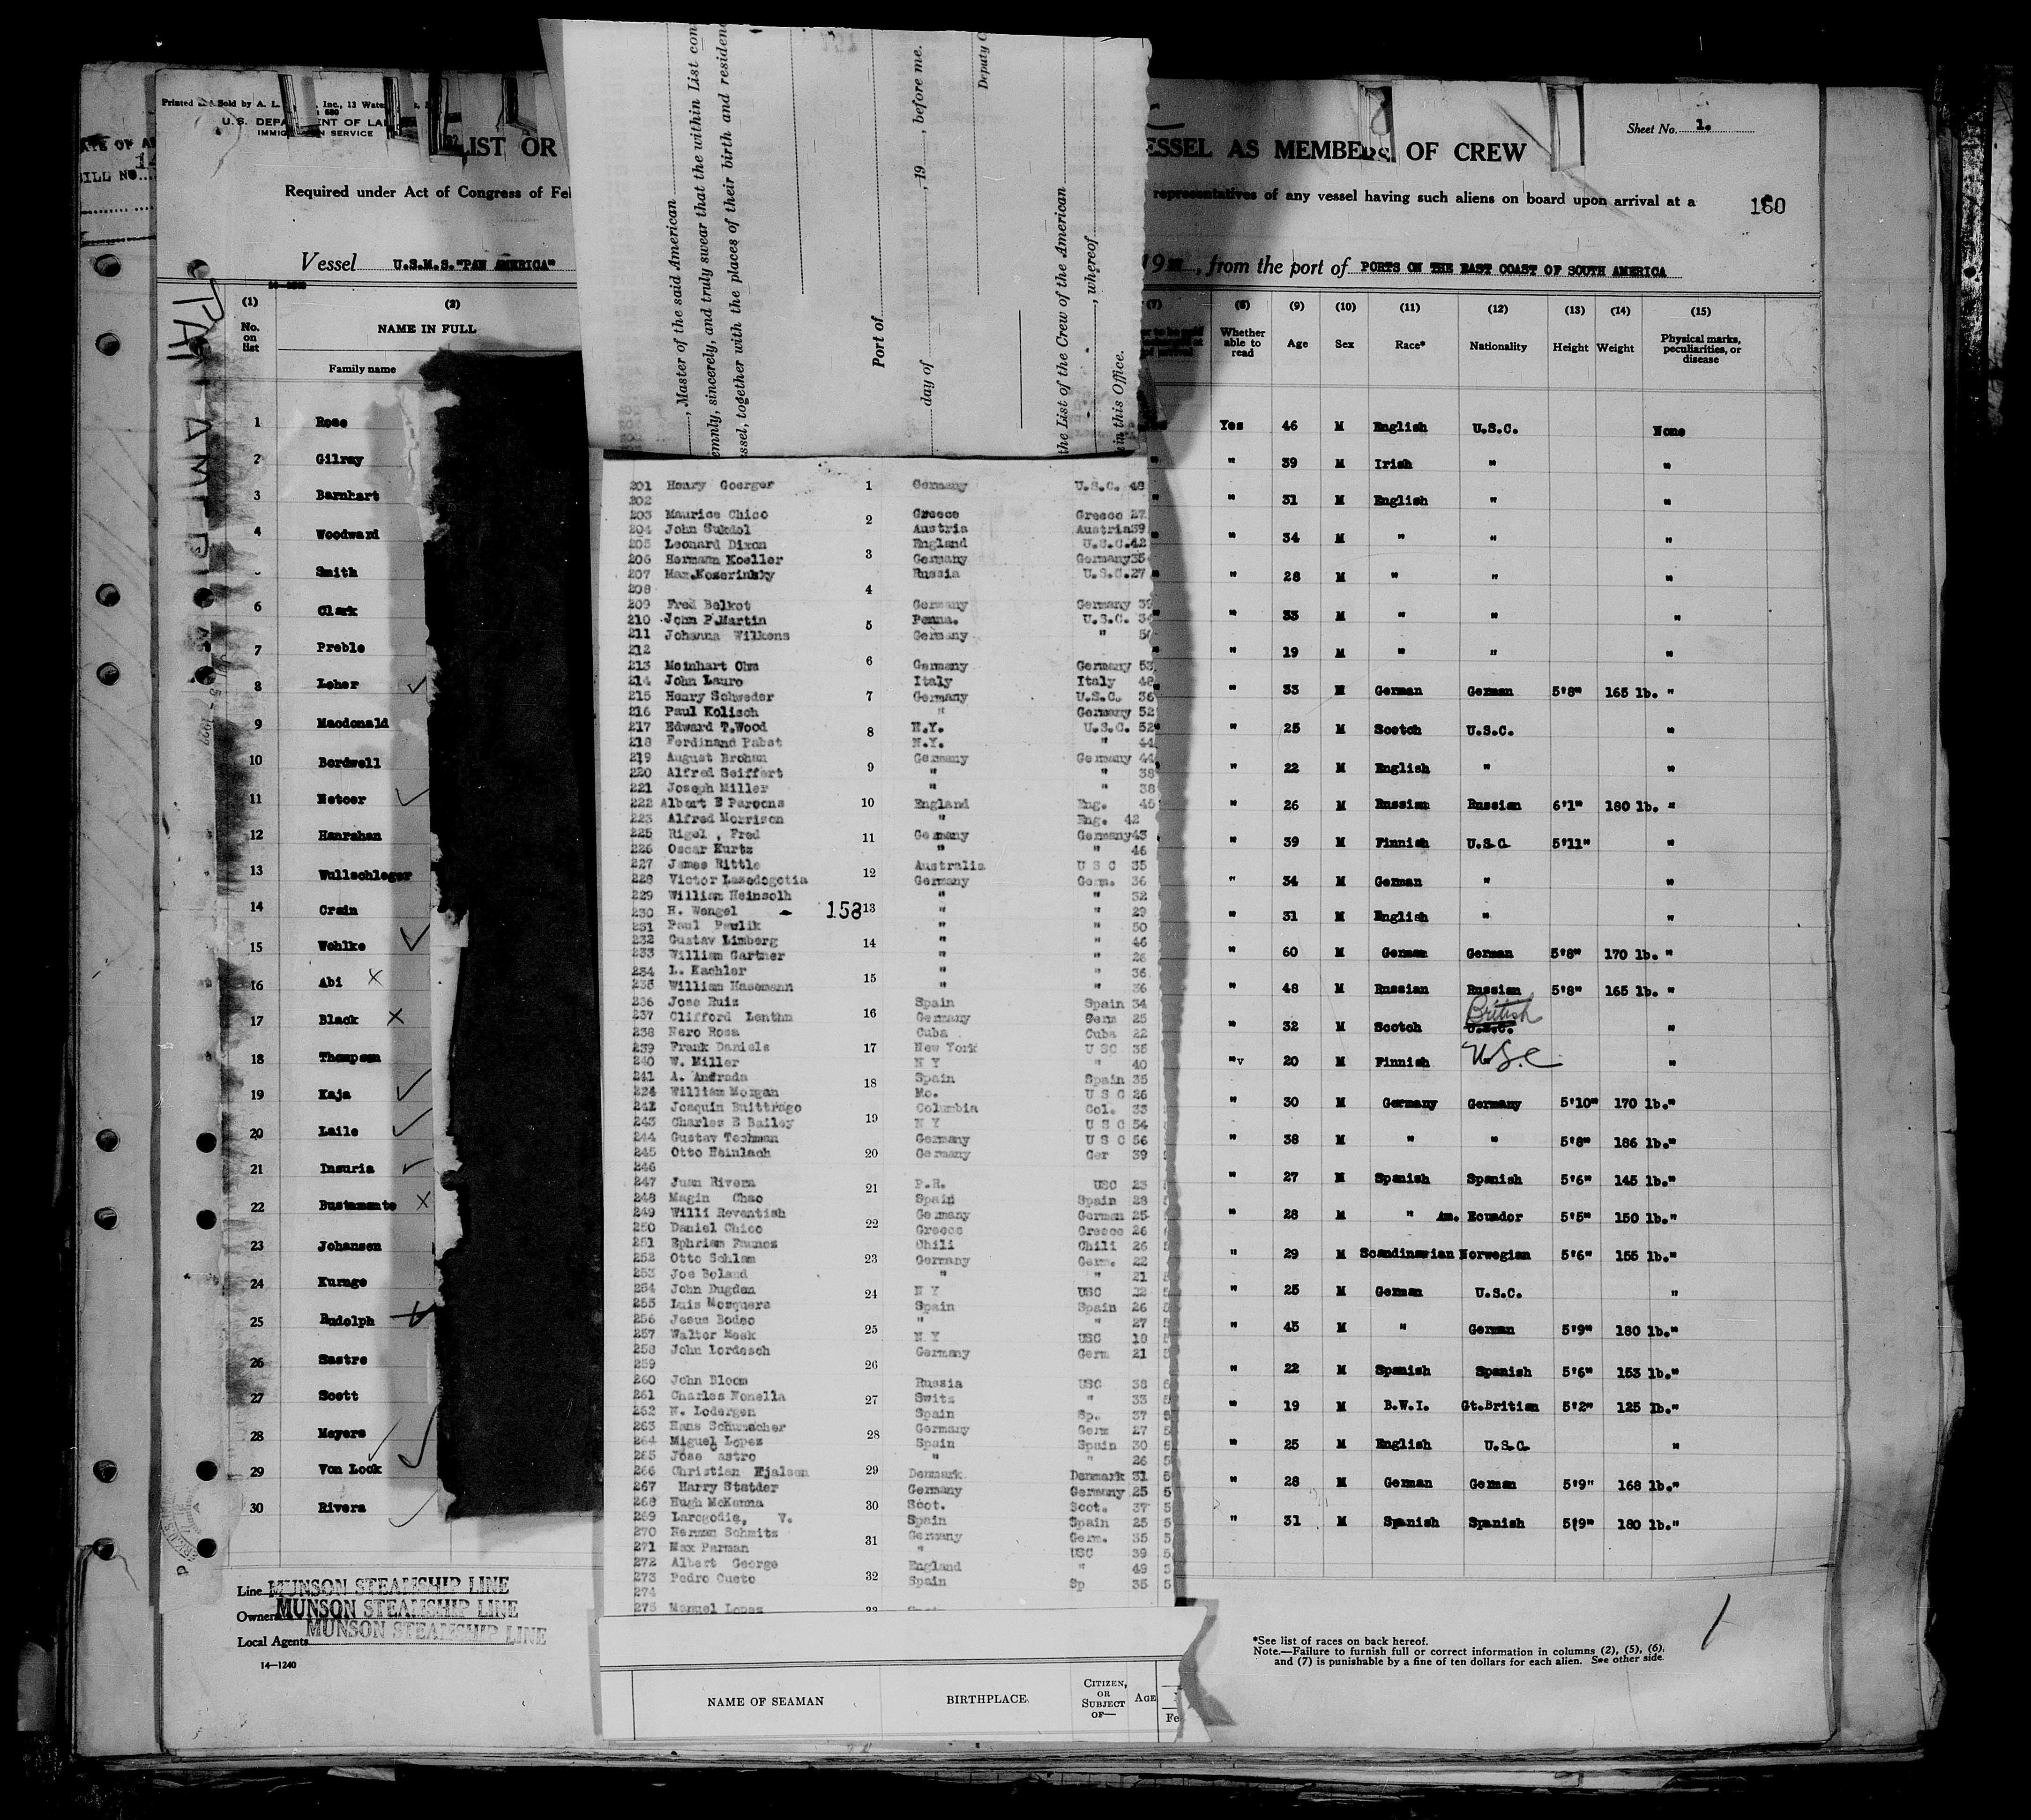 Sheet No. 1.
LIST OR
ESSEL AS MEMBERS OF CREW
U.S. DEPA ENT OF LA
IMMIG N SERVICE
Required under Act of Congress of Fe
representatives of any vessel having such aliens on board upon arrival at a
160
Vessel U.S.M.S."PAN AMERICA"
, from the port of PORTS ON THE EAST COAST OF SOUTH AMERICA
, Master of the said American
emnly, sincerely, and truly swear that the within List con
essel, together with the places of their birth and residenc
Port of
day of , 19 , before me.
Deputy C
the List of the Crew of the American
, whereof
in this Office.
(1) (2) (7) (8) (9) (10) (11) (12) (13) (14) (15)
No. on list NAME IN FULL Whether able to read Age Sex Race* Nationality Height Weight Physical marks, peculiarities, or disease
Family name
1 Rose Yes 46 M English U.S.C. None
2 Gilray " 39 M Irish " "
3 Barnhart " 31 M English " "
4 Woodward " 34 M " " "
Smith " 28 M " " "
6 Clark " 33 M " " "
7 Preble " 19 M " " "
8 Leher " 33 M German German 5'8" 165 lb. "
9 Macdonald " 25 M Scotch U.S.C. "
10 Bordwell " 22 M English " "
11 Netcer " 26 M Russian Russian 6'1" 180 lb. "
12 Hanrahan " 39 M Finnish U.S.C. 5'11" "
13 Wullschleger " 34 M German " "
14 Crain " 31 M English " "
15 Wohlke " 60 M German German 5'8" 170 lb. "
16 Abi " 48 M Russian Russian 5'8" 165 lb. "
17 Black " 32 M Scotch U.S.C. British "
18 Thompson " 20 M Finnish USC "
19 Kaja " 30 M Germany Germany 5'10" 170 lb."
20 Laile " 38 M " " 5'8" 186 lb."
21 Insuria " 27 M Spanish Spanish 5'6" 145 lb."
22 Bustamante " 28 M " Am. Ecuador 5'5" 150 lb."
23 Johansen " 29 M Scandinavian Norwegian 5'6" 155 lb."
24 Kurage " 25 M German U.S.C. "
25 Rudolph " 45 M " German 5'9" 180 lb."
26 Sastre " 22 M Spanish Spanish 5'6" 153 lb."
27 Scott " 19 M B.W.I. Gt.Britian 5'2" 125 lb."
28 Meyers " 25 M English U.S.C. "
29 Von Look " 28 M German German 5'9" 168 lb."
30 Rivera " 31 M Spanish Spanish 5'9" 180 lb."
201 Henry Goerger 1 Germany U.S.C. 48
202
203 Maurice Chico 2 Greece Greece 27
204 John Sukdol Austria Austria39
205 Leonard Dixon England U.S.C.42
206 Hermann Koeller 3 Germany Germany35
207 Max.Kozerinsky Russia U.S.C.27
208 4
209 Fred Belkot Germany Germany 39
210 John P.Martin Penna. U.S.C. 3
211 Johanna Wilkens 5 Germany " 5
212
213 Meinhart Ohm 6 Germany Germany 53
214 John Lauro Italy Italy 48
215 Henry Schweder 7 Germany U.S.C. 36
216 Paul Kolisch " Germany 52
217 Edward T.Wood 8 N.Y. U.S.C. 52
218 Ferdinand Pabst N.Y. " 44
219 August Brohan Germany Germany 44
220 Alfred Seiffert 9 " " 38
221 Joseph Miller " " 38
222 Albert E Parsons 10 England Eng. 45
223 Alfred Morrison " Eng. 42
225 Rigel , Fred 11 Germany Germany43
226 Oscar Kurtz " " 46
227 James Rittle Australia U S C 35
228 Victor Lasedogotia 12 Germany Germ. 36
229 William Heinsolh " " 32
230 H. Wengel - 158 13 " " 29
231 Paul Pawlik " " 50
232 Gustav Limberg 14 " " 46
233 William Gartner " " 26
234 L. Kachler 15 " " 36
235 William Hasemann " " 36
236 Jose Ruiz Spain Spain 34
237 Clifford Lenthm 16 Germany Germ 25
238 Nero Rosa Cuba Cuba 22
239 Frank Daniels 17 New York U SC 35
240 W. Miller N Y " 40
241 A. Andrada 18 Spain Spain 35
224 William Morgan Mo. U S C 26
242 Joaquin Buittrago Columbia Col. 33
243 Charles E Bailey 19 N Y U S C 54
244 Gustav Techman Germany U S C 56
245 Otto Heinlach 20 Germany Ger 39
246
247 Juan Rivera 21 P.R. USC 23
248 Magin Chao Spain Spain 28
249 Willi Reventish Germany German 25
250 Daniel Chico 22 Greece Greece 26
251 Ephriam Fauncz Chili Chili 26
252 Otto Schlam 23 Germany Germ. 22
253 Joe Boland " " 21
254 John Dugdan 24 N Y USC 22
255 Luis Mosquera Spain Spain 26
256 Jesus Bodeo " " 27
257 Walter Mesk 25 N Y USC 18
258 John Lordesch Germany Germ 21
259 26
260 John Bloom Russia USC 38
261 Charles Nonella 27 Switz " 33
262 N. Lodergen Spain Sp. 37
263 Hans Schumacher 28 Germany Germ 27
264 Miguel Lopez Spain Spain 30
265 Jose astro " " 26
266 Christian Hjalsen 29 Denmark Denmark 31
267 Harry Statder Germany Germany 25
268 Hugh McKenna 30 Scot. Scot. 37
269 Larogodie, V. Spain Spain 25
270 Herman Schmitz 31 Germany Germ. 35
271 Max Parman " USC 39
272 Albert George England " 49
273 Pedro Cueto 32 Spain Sp 35
274
275 Manuel Lopez 33
NAME OF SEAMAN BIRTHPLACE CITIZEN, OR SUBJECT OF— AGE
Line MUNSON STEAMSHIP LINE
Owners MUNSON STEAMSHIP LINE
Local Agents MUNSON STEAMSHIP LINE
14—1240
*See list of races on back hereof.
Note.—Failure to furnish full or correct information in columns (2), (5), (6),
and (7) is punishable by a fine of ten dollars for each alien. See other side.